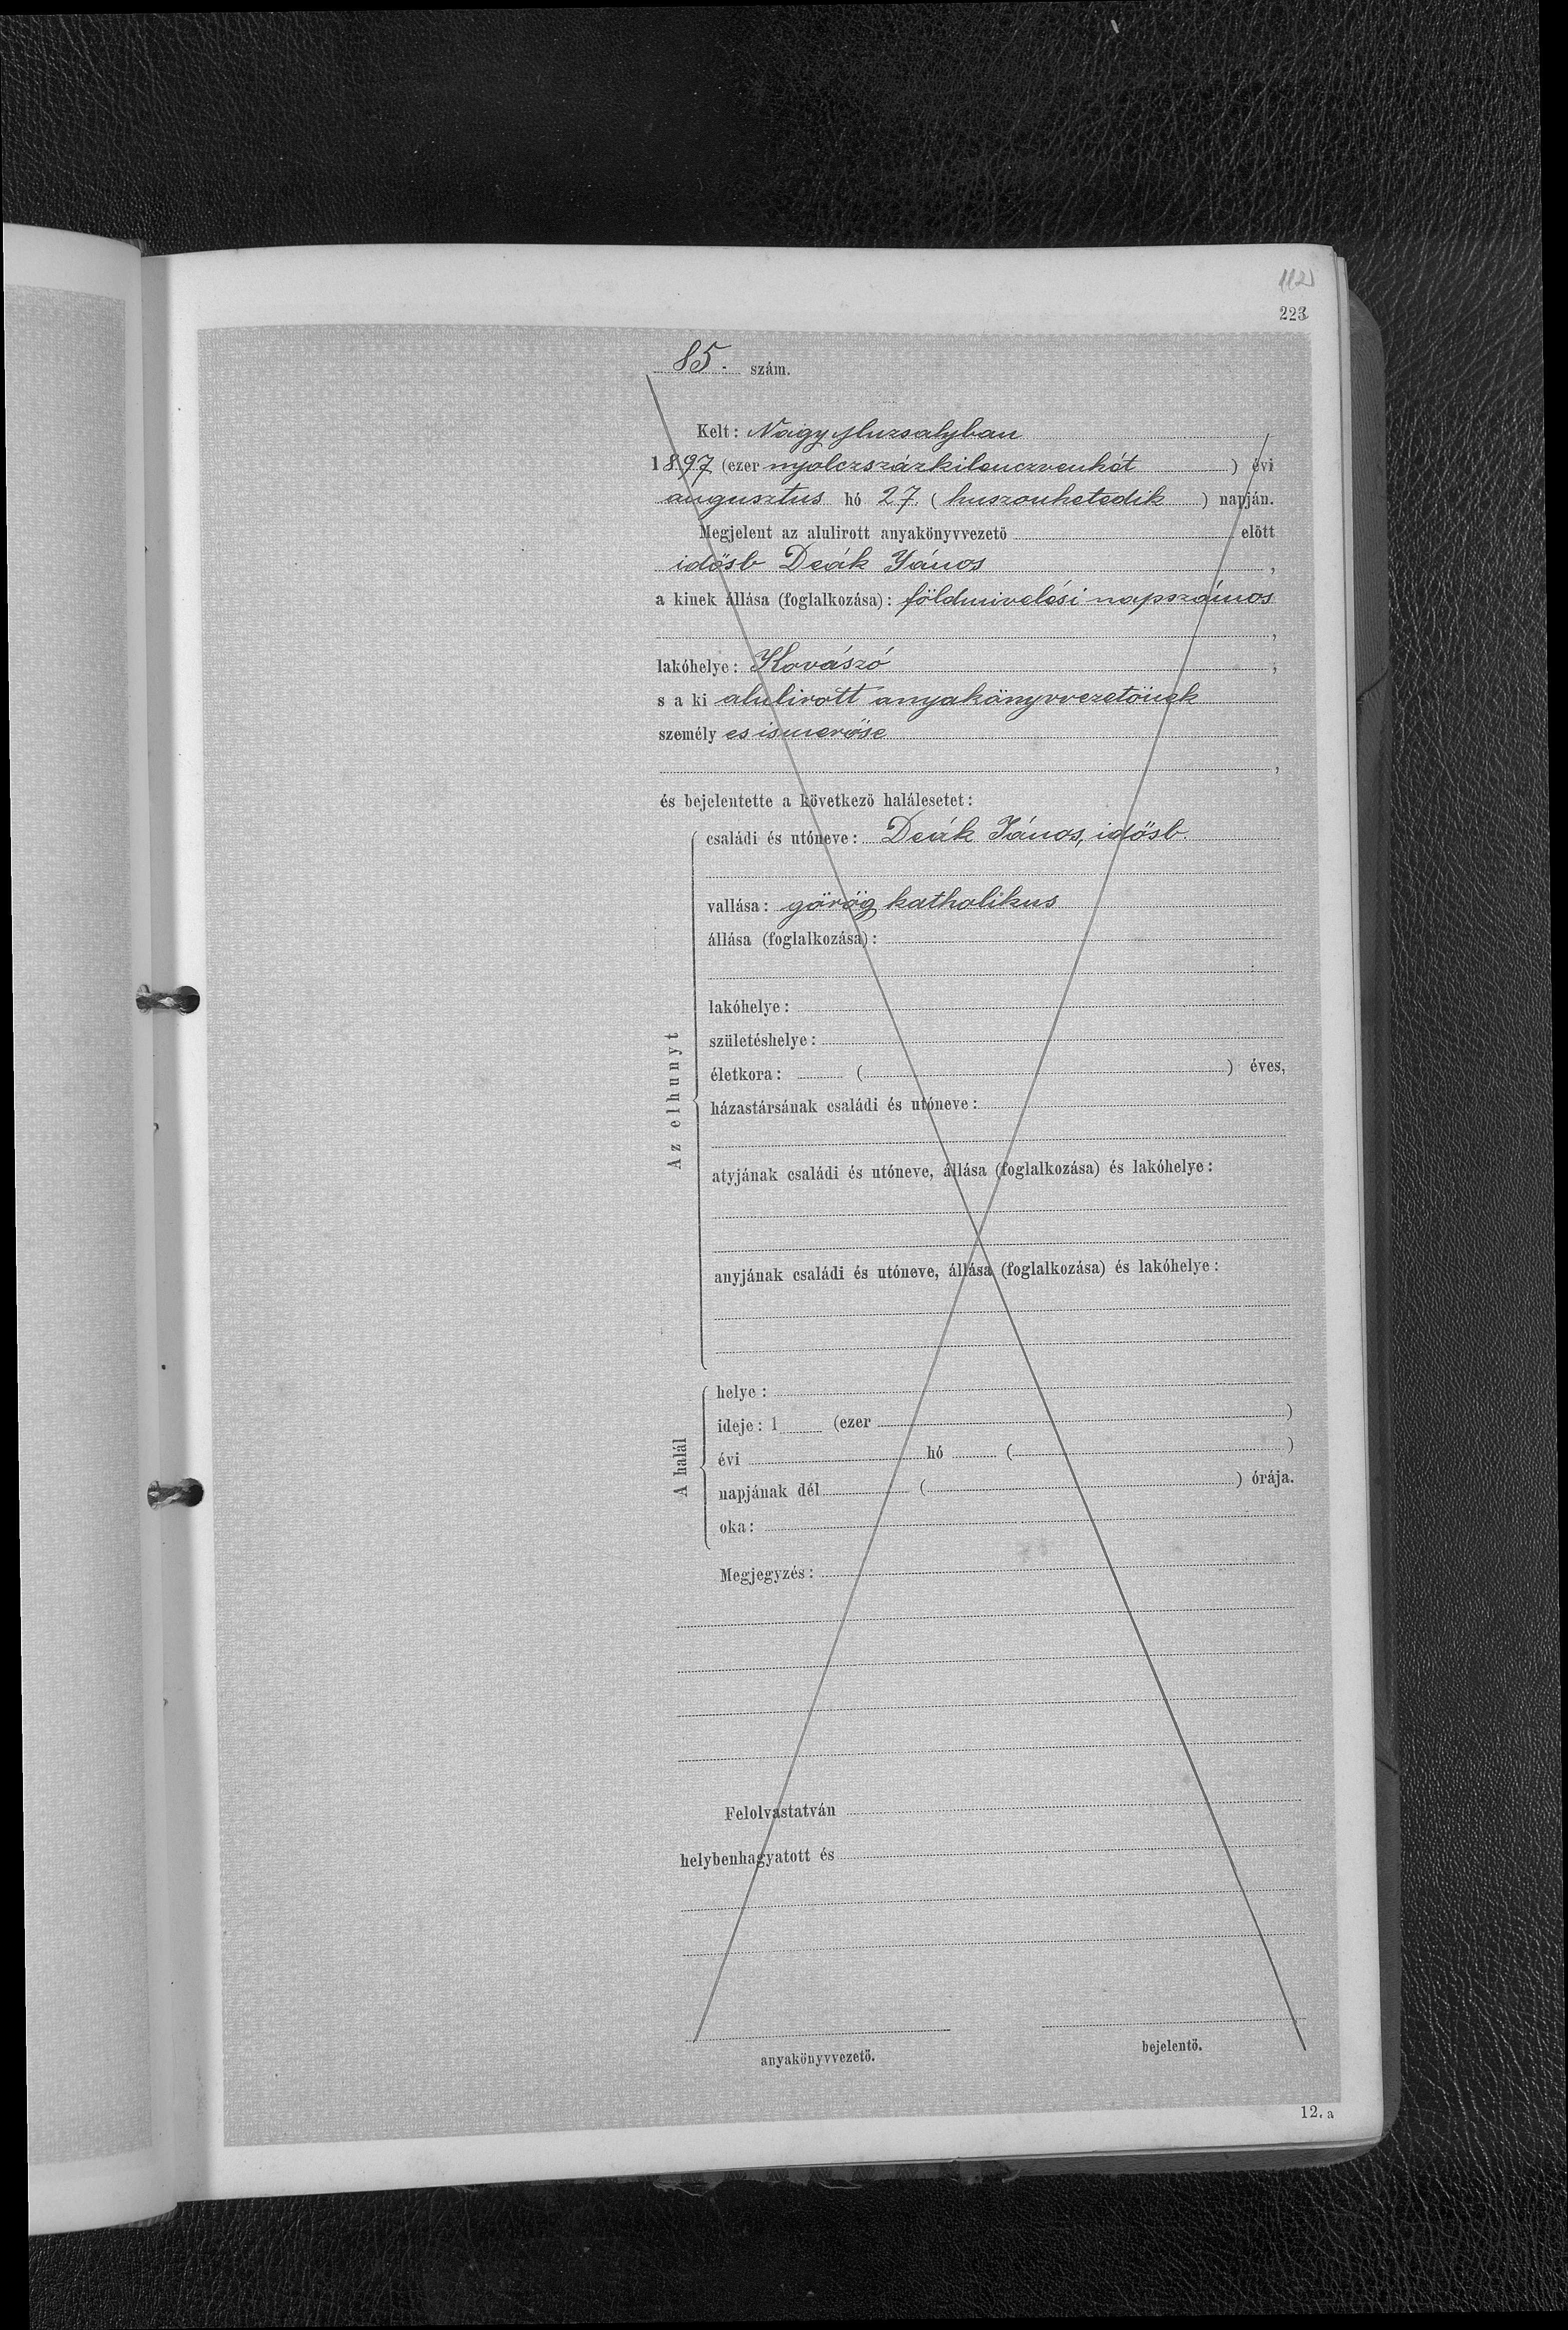 112
223
85. szám.
Kelt: Nagy Muzsalyban
1897 (ezer nyolczszázkilenczvenhét) évi
augusztus hó 27. (huszonhetedik) napján.
Megjelent az alulirott anyakönyvvezető előtt
idősb Deák János,
a kinek állása (foglalkozása): földmivelési napszámos
,
lakóhelye: Kovászó,
s a ki alulirott anyakönyvvezetőnek
személyes ismerőse
,
és bejelentette a következő halálesetet:
Az elhunyt
családi és utóneve: Deák János, idősb.
vallása: görög katholikus
állása (foglalkozása):
lakóhelye:
születéshelye:
életkora: ( ) éves,
házastársának családi és utóneve:
atyjának családi és utóneve, állása (foglalkozása) és lakóhelye:
anyjának családi és utóneve, állása (foglalkozása) és lakóhelye:
A halál
helye:
ideje: 1 (ezer )
évi hó ( )
napjának dél ( ) órája.
oka:
Megjegyzés:
Felolvastatván
helybenhagyatott és
anyakönyvvezető. bejelentő.
12. a